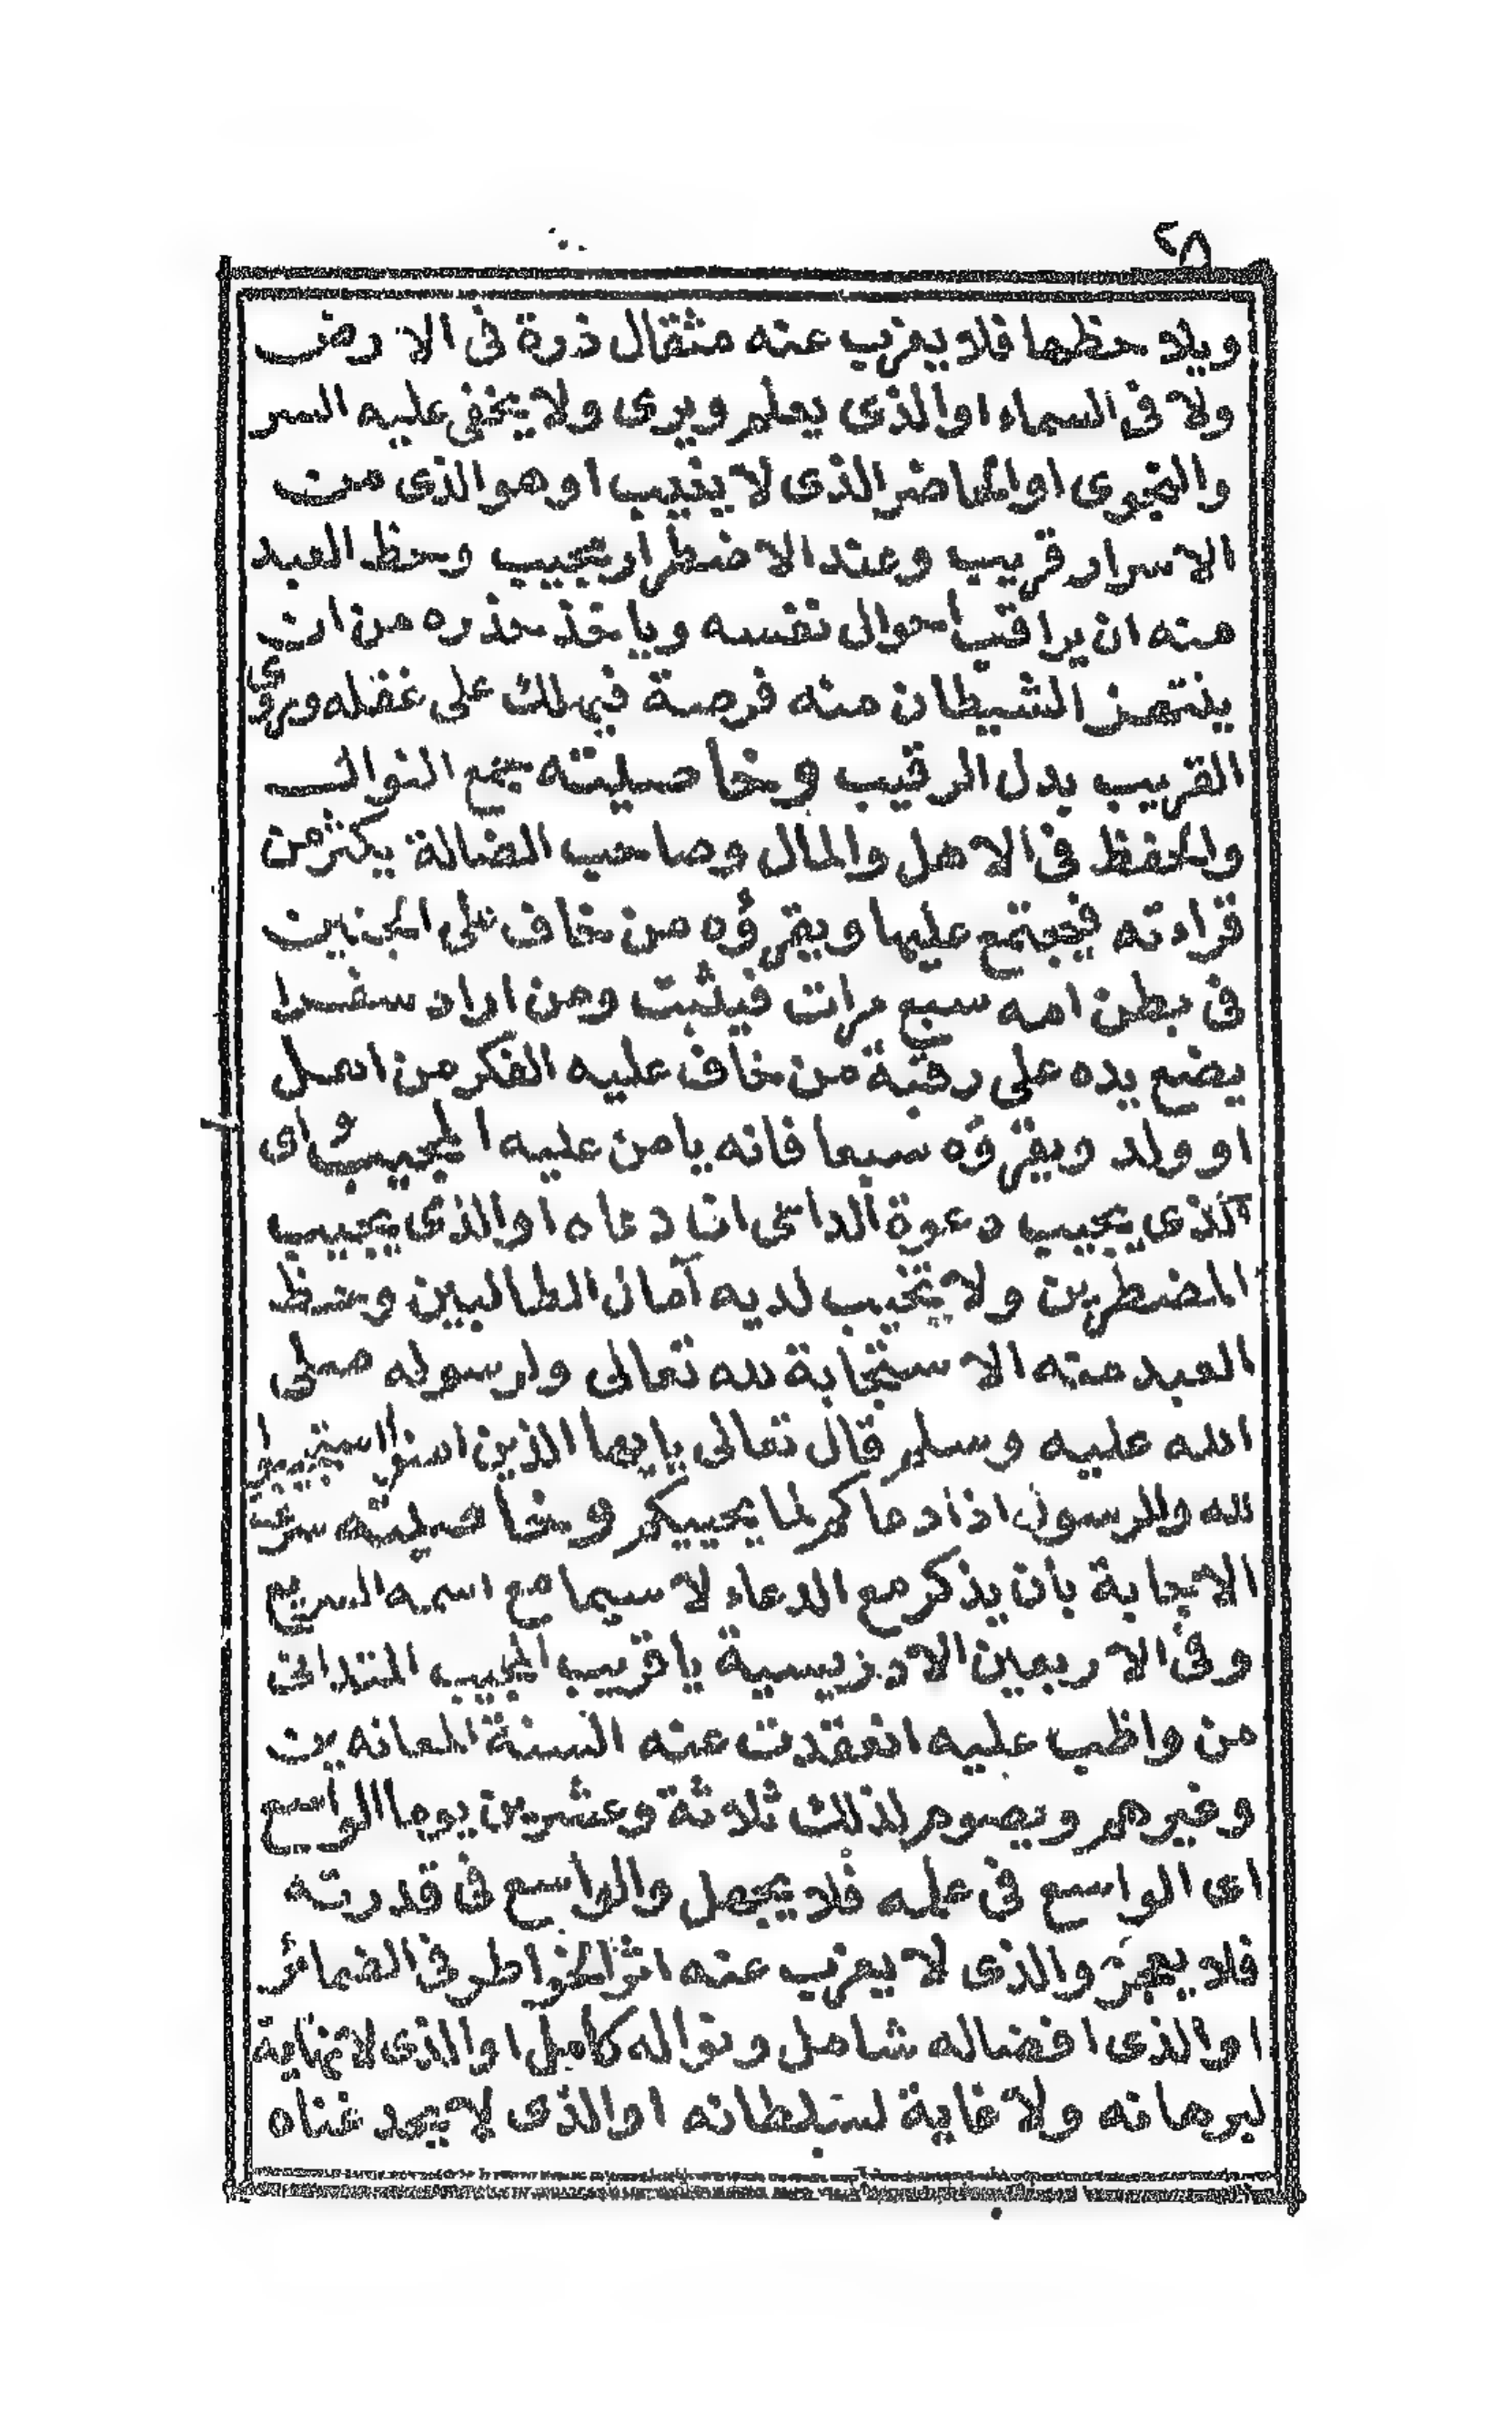 ٢٨
ويلاحظها فلا يعزب عنه مثقال ذرة فى الارض
ولا فى السماء اوالذى يعلم ويرى ولا يخفى عليه السر
والنجوى اوالحاضر الذى لا يغيب اوهوالذى من
الاسرار قريب وعند الاضطرار يجيب وحظ العبد
منه ان يراقب احوال نفسه وياخذ حذره من ان
ينتهز الشيطان منه فرصة فيهلك على غفله وروى
القريب بدل الرقيب وخاصيته جمع النوائب
والحفظ فى الاهل والمال وصاحب الضالة يكثر من
قراءته فيجتمع عليها ويقرؤه من خاف على الجنين
فى بطن امه سبع مرات فيثبت ومن اراد سفرا
يضع يده على رقبة من خاف عليه الفكر من اهل
او ولد ويقرؤه سبعا فانه يامن عليه المجيب اى
الذى يجيب دعوة الداعى ان دعاه اوالذى يجيب
المضطرين ولا تخيب لديه آمال الطالبين وحظ
العبد منه الاستجابة لله تعالى ولرسوله صلى
الله عليه وسلم قال تعالى يايها الذين امنوا استجيبوا
لله وللرسول اذا دعاكم لما يحييكم وخاصيته سرعة
الاجابة بان يذكر مع الدعاء لا سيما مع اسمه السريع
وفى الاربعين الادريسية يا قريب المجيب المتدانى
من واظب عليه انعقدت عنه السنة المعاندين
وغيرهم ويصوم لذلك ثلاثة وعشرين يوما الواسع
اى الواسع فى علمه فلا يجهل والواسع فى قدرته
فلا يعجز والذى لا يعزب عنه اثر الخواطر فى الضمائر
اوالذى افضاله شامل ونواله كامل اوالذى لا نهاية
لبرهانه ولا غاية لسلطانه اوالذى لا يحد غناه